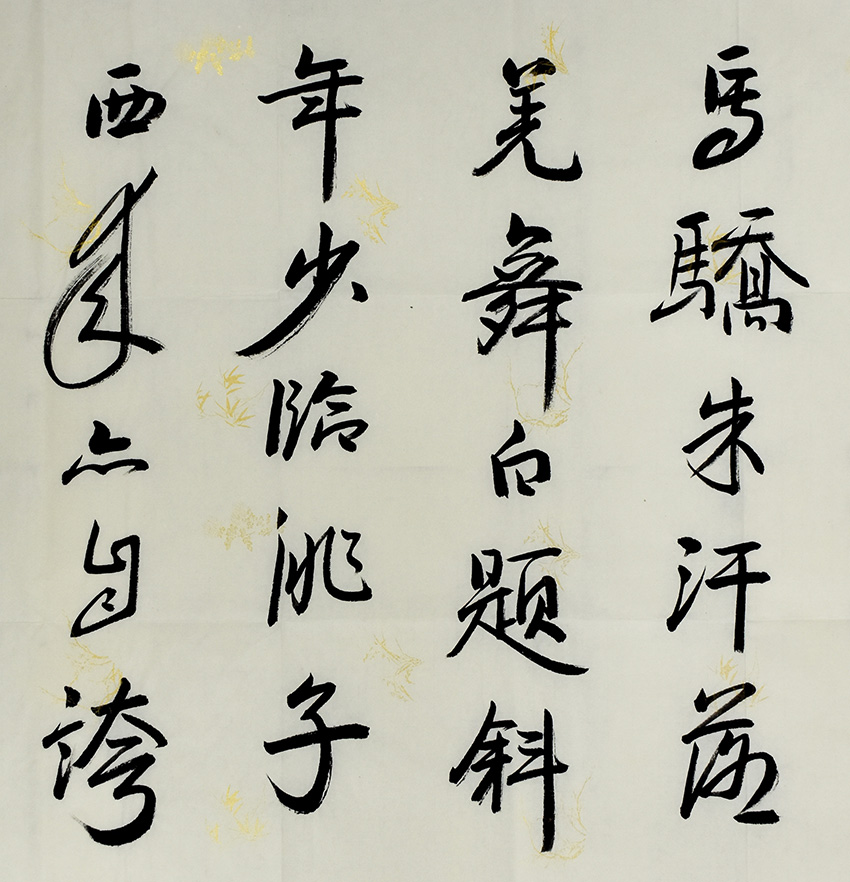 馬驕朱汗落
羌舞白題斜
年少臨洮子
西來亦自誇